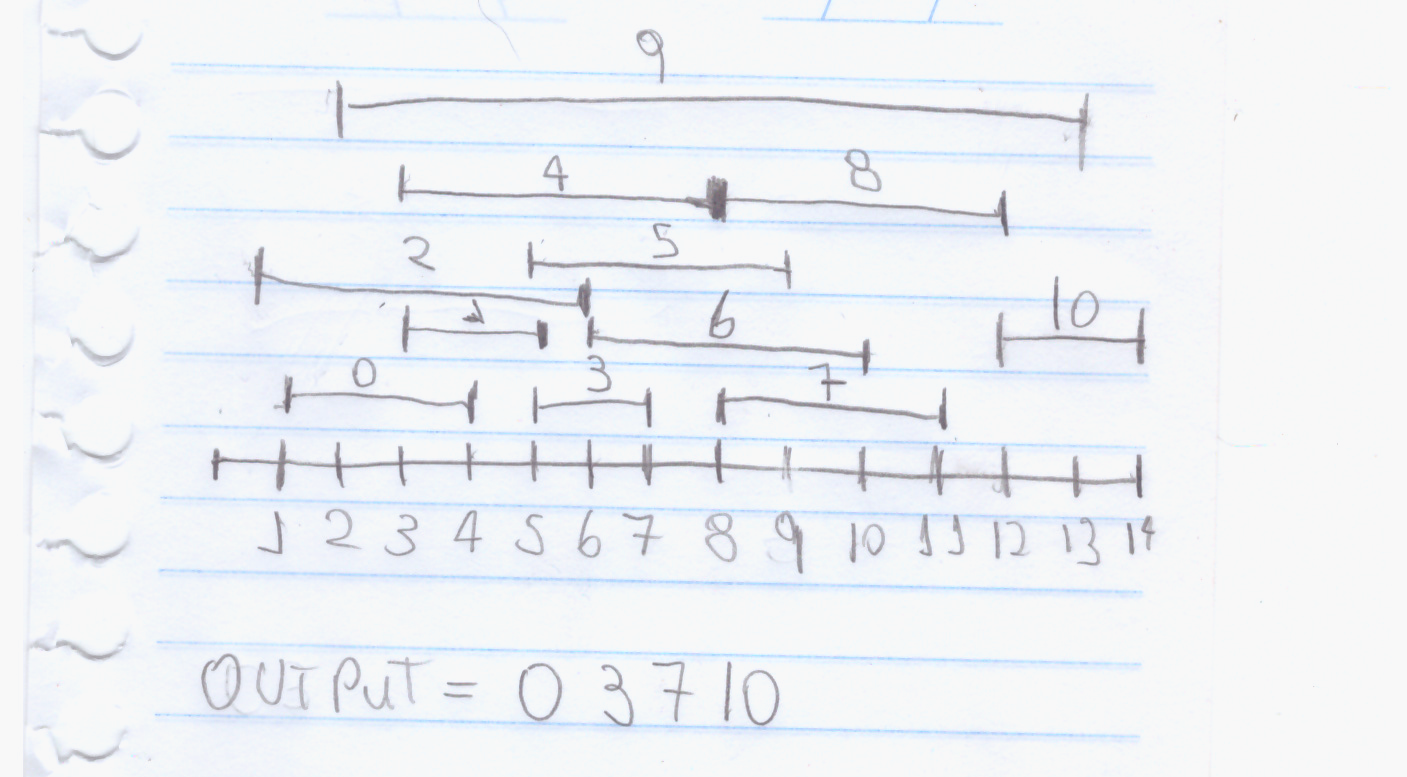 9
4 8
2 5
1 6 10
0 3 7
1 2 3 4 5 6 7 8 9 10 11 12 13 14
OUTPUT = 0 3 7 10